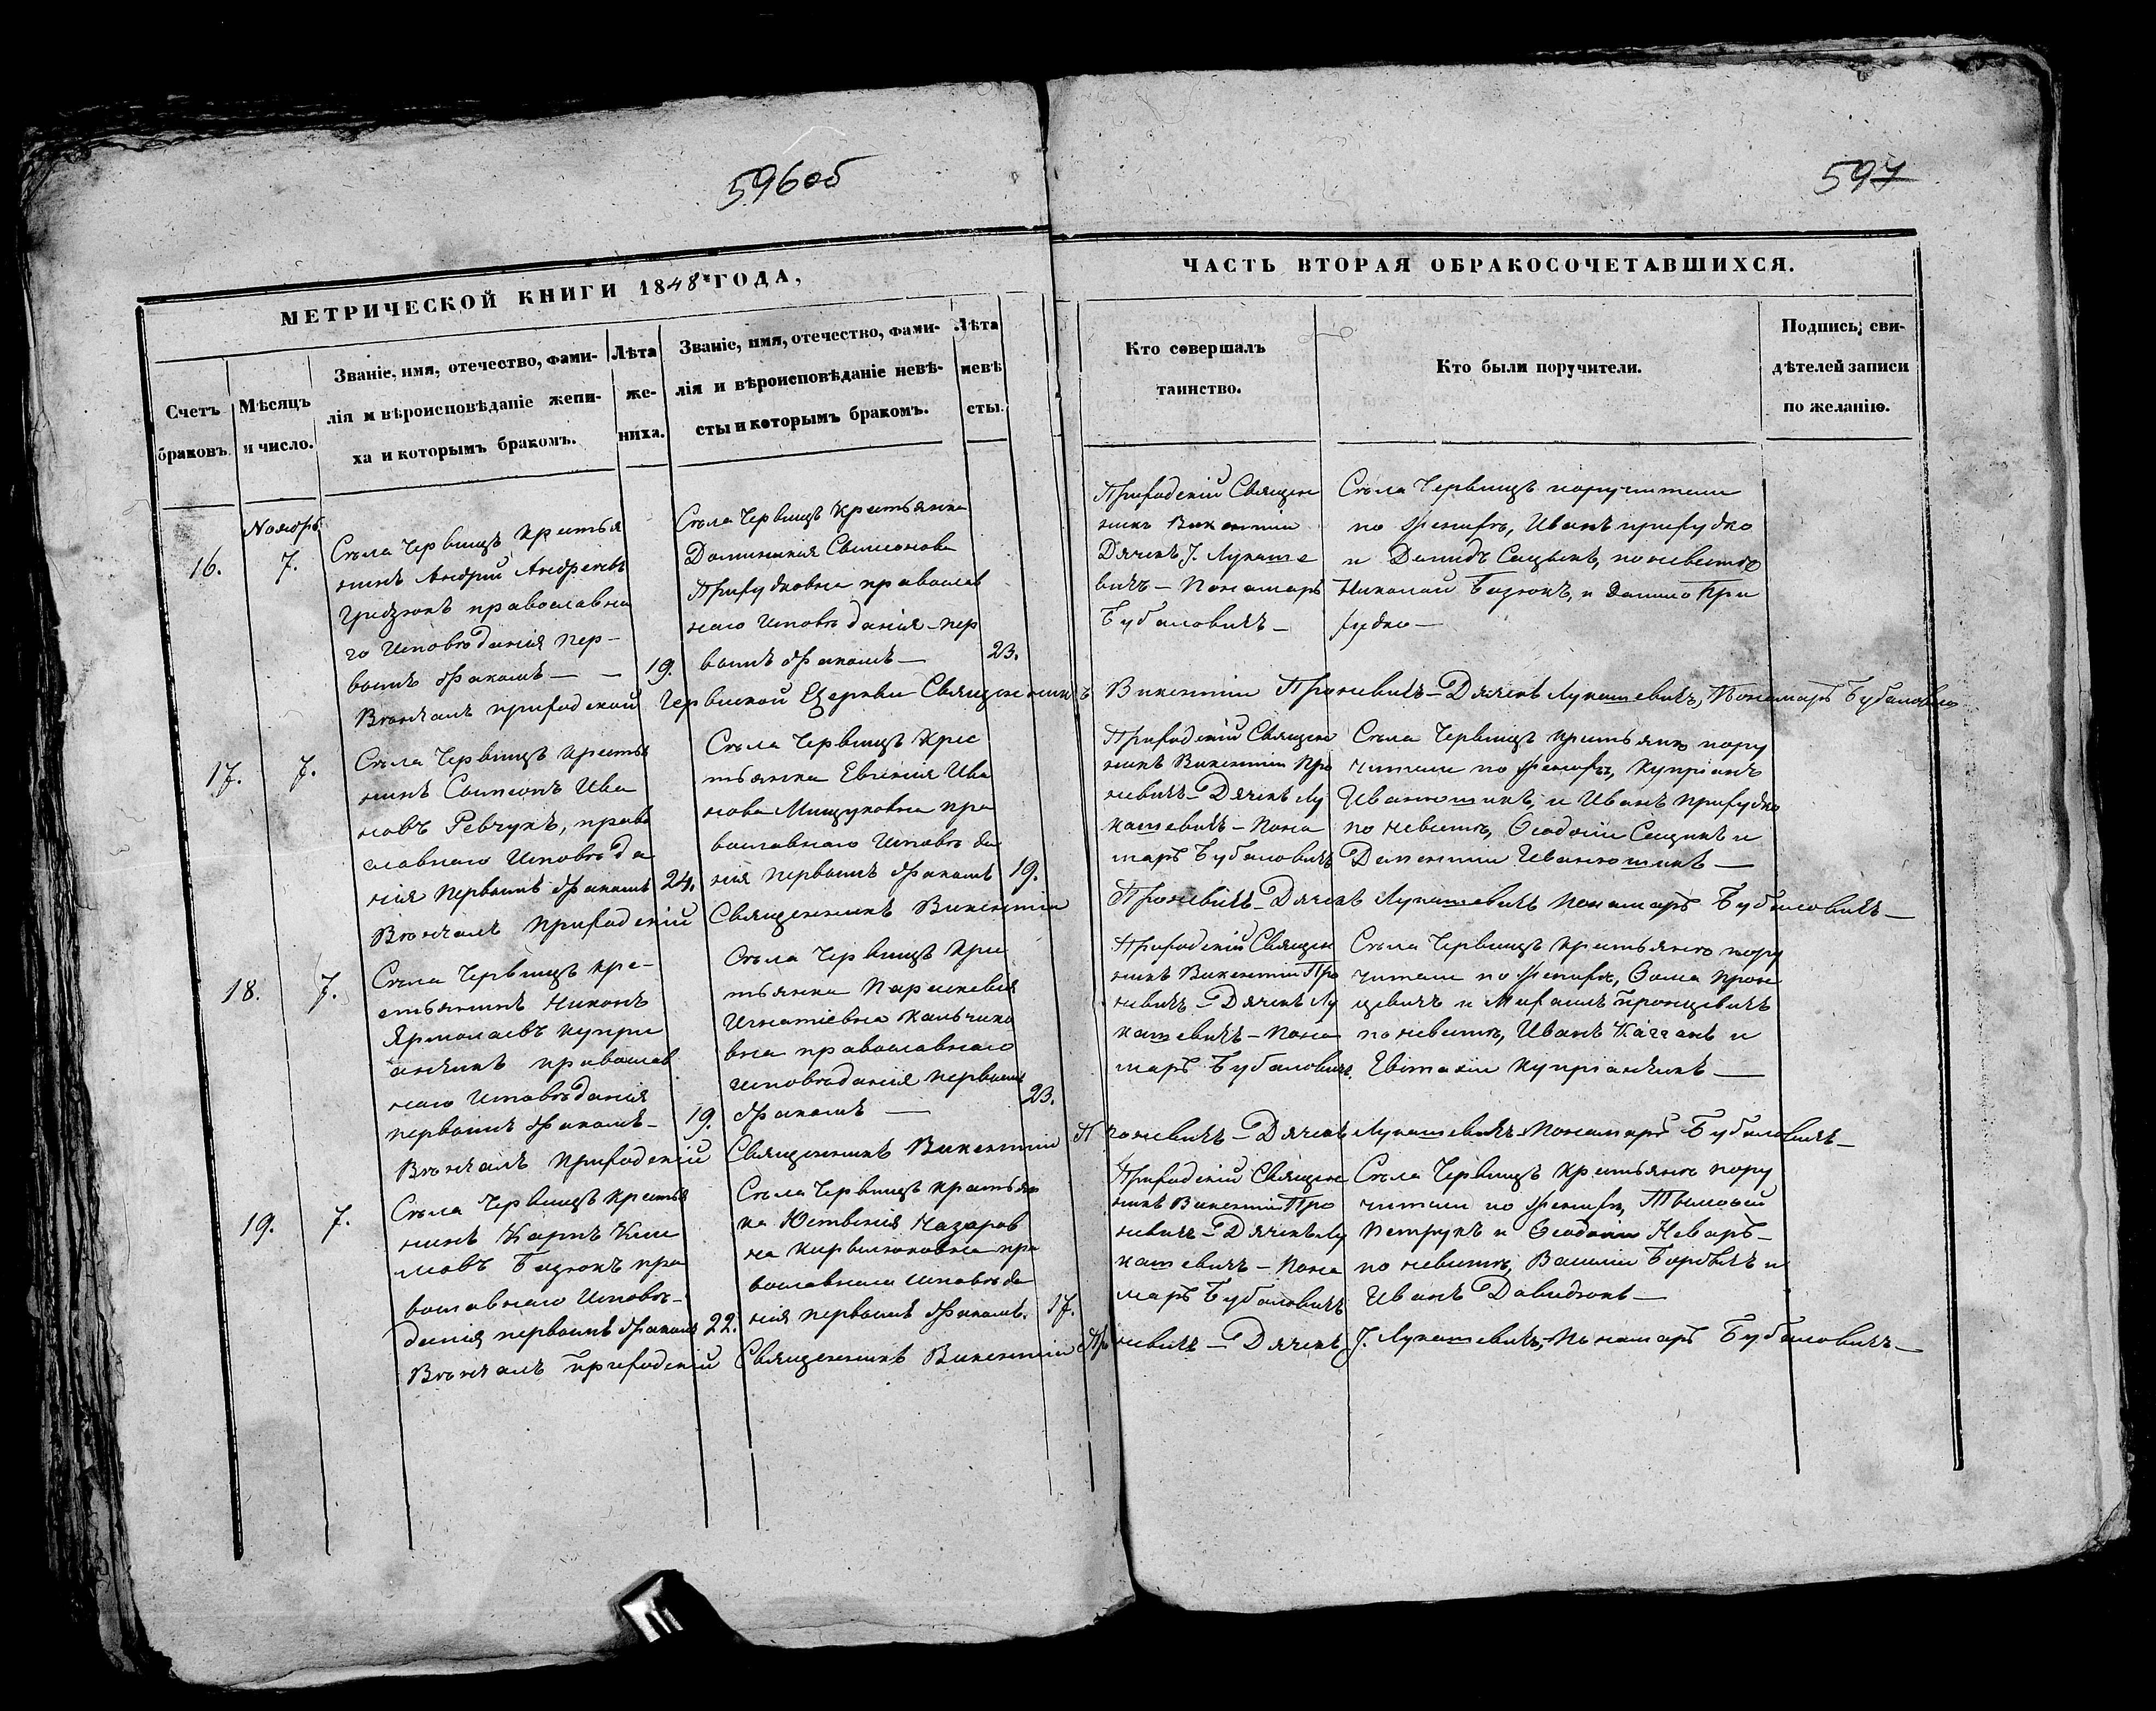 596об
597
МЕТРИЧЕСКОЙ КНИГИ 1848го ГОДА,
ЧАСТЬ ВТОРАЯ ОБРАКОСОЧЕТАВШИХСЯ.
Счетъ
браковъ.
Мѣсяцъ
и число.
Званіе, имя, отечество, фами-
лія и вѣроисповѣданіе жени-
ха и которымъ бракомъ.
Лѣта
же-
ниха.
Званіе, имя, отечество, фами-
лія и вѣроисповѣданіе невѣ-
сты и которымъ бракомъ.
Лѣта
невѣ
сты.
Кто совершалъ
таинство.
Кто были поручители.
Подпись, сви-
дѣтелей записи
по желанію.
16.
Ноябрь
7.
Села Червищъ крестья
нинъ Андрій Андреевъ
Гридюкъ православна
го исповѣданія пер-
вымъ бракомъ —
19.
Села Червищъ крестьянка
Доминикія Симеонова
Прихудковна православ
наго исповѣданія пер
вымъ бракомъ —
23.
Приходскій Священ
никъ Викентій
Дячекъ І. Лукаше
вичъ – Пономарь
Бубаловичъ –
Села Червищъ поручители
по женихѣ, Иванъ прихудко
и Демидъ Сацыкъ, по невестѣ
Николай Базюкъ, и Данило При
худко –
Вѣнчалъ приходской Червиской Церкви Священникъ Викентій Проневичъ – Дячекъ Лукашевичъ, Пономарь Бубаловичъ
17.
7.
Села Червищъ крестья
нинъ Самсонъ Ива
новъ Ревчукъ, право
славнаго исповѣда
нія первымъ бракомъ
24.
Села Червищъ крес
тьянка Евгенія Ива
нова Мищуковна пра
вославнаго исповѣда
нія первымъ бракомъ
19.
Приходскій Священ
никъ Викентій Про
невичъ – Дячекъ Лу
кашевичъ – Поно
марь Бубаловичъ
Села Червищъ крестьяне пору
чители по женихѣ, Купріанъ
Иванюшикъ, и Иванъ прихудко
по невестѣ, Ѳеодосій Сацикъ и
Дементій Иванюшикъ —
Вѣнчалъ Приходскій Священникъ Викентій Проневичъ – Дячекъ Лукашевичъ Пономарь Бубаловичъ –
18.
7.
Села Червищъ кре-
стьянинъ Никонъ
Ярмолаевъ купри
анчикъ православ
наго исповѣданія
первымъ бракомъ –
19.
Села Червищъ кре
стьянка Параскевія
Игнатіевна Кальчико
вна православнаго
исповѣданія первымъ
бракомъ —
23.
Приходскій Священ
никъ Викентій Про
невичъ – Дячекъ Лу
кашевичъ – Поно
марь Бубаловичъ.
Села Червищъ крестьяне пору
чители по женихѣ, Ѳома Прон
цевичъ и Михаилъ Пронцевичъ
по невестѣ, Иванъ Качанъ и
Евстахій Купріанчикъ —
Вѣнчалъ Приходскій Священникъ Викентій Проневичъ – Дячекъ Лукашевичъ Пономарь Бубаловичъ –
19.
7.
Села Червищъ крестья
нинъ Карпъ Кли
мовъ Базюкъ пра
вославнаго исповѣ-
данія первымъ бракомъ
22.
Села Червищъ крестьян
ка Юстинія Назаров
на Кирвелюковна пра
вославнаго исповѣда
нія первымъ бракомъ.
17.
Приходскій Священ
никъ Викентій Про
невичъ – Дячекъ Лу
кашевичъ – Поно
марь Бубаловичъ
Села Червищъ крестьяне пору
чители по женихѣ, Тимоѳей
Петрукъ и Ѳеодосій Неваръ –
по невестѣ, Василій Боровикъ и
Иванъ Давидюкъ —
Вѣнчалъ Приходскій Священникъ Викентій Проневичъ – Дячекъ І. Лукашевичъ, Пономарь Бубаловичъ –